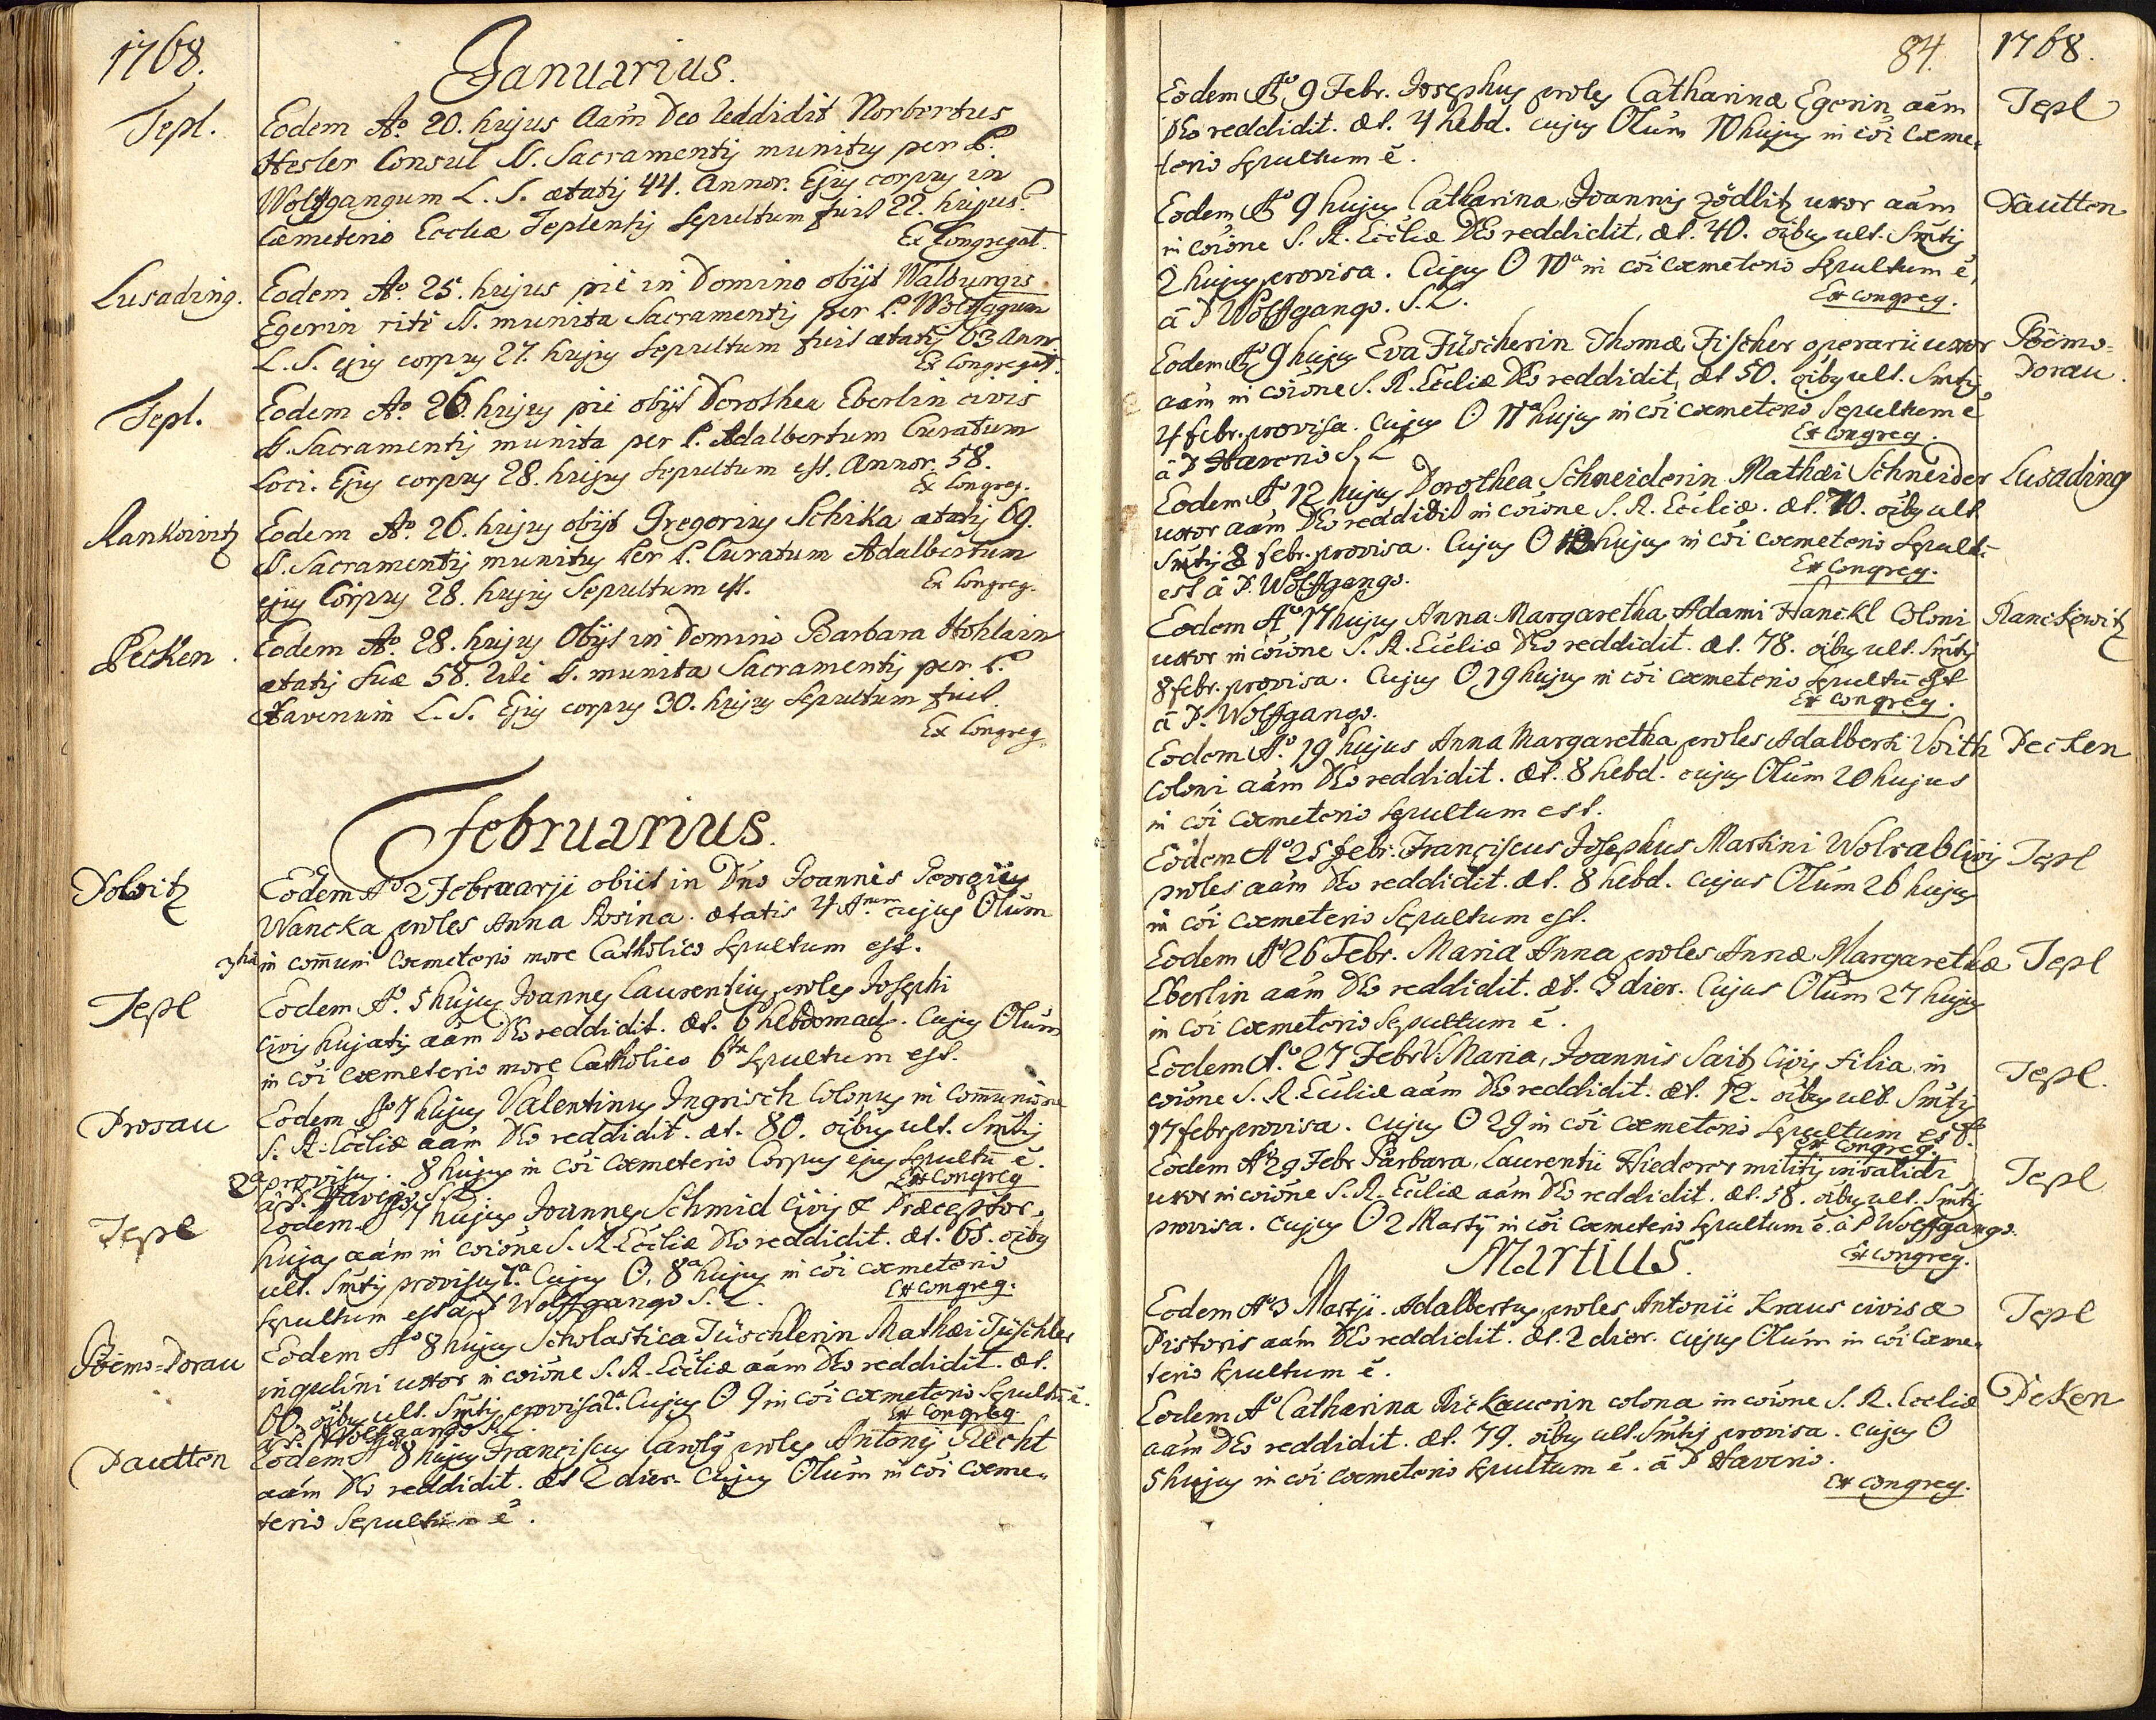 1768.
Januarius.
Tepl.
Eodem Ao. 20. hujus aam Deo reddidit Norbertus
Hesler Consul S. Sacramentis munitus per P.
Wolffgangum L. S. ætatis 44. Annor. Ejus corpus in
Cæmeterio Eccliæ Teplentis sepultum fuit 22. hujus.
Ex Congregat.
Lusading.
Eodem Ao. 25. hujus pie in Domino obijt Walburgis
Egerin rite S. munita Sacramentis per P. Wolffgagum
L. S. ejus corpus 27. hujus sepultum fuit ætatis 63 Annr.
Ex Congregat.
Tepl.
Eodem Ao. 26. hujus pie obijt Dorothea Eberlin civis
S. Sacramentis munita per P. Adalbertum Curatum
Loci. Ejus corpus 28. hujus sepultum est. Annor. 58.
Ex Congreg.
Rankowitz
Eodem Ao. 26. hujus obijt Gregorius Schika ætatis 69.
S. Sacramentis munitus per P. Curatum Adalbertum
ejus Corpus 28. hujus sepultum est.
Ex Congreg.
Pecken.
Eodem Ao. 28. hujus Obijt in Domino Barbara Hohlain
ætatis suæ 58. rite S. munita Sacramentis per P.
Havenum L. S. Ejus corpus 30. hujus sepultum fuit.
Ex Congreg.
Februarius.
Dobritz
Eodem Ao 2 Februarji obiit in Dno Joannis Georgius
Wancka proles Anna Rosina. ætatis 4 Anm cujus Olum
3tia in comuni Cœmeterio more Catholico sepultum est.
Tepl
Eodem Ao. 5 hujus Joannes Laurentius proles Josephi
civis hujatis aam Deo reddidit. æt. 6 hebdomad. Cujus Olum
in coi Cœmeterio more Catholico 6ta sepultum est.
Prosau
Eodem Ao 7 hujus Valentinus Ingrisch Colonus in Comunione
S. R. Eccliæ aam Deo reddidit. æt. 80. oibus ult. Smtis
2a provisus. 8 hujus in coi Cœmeterio Corpus ejus sepultu e.
a P. Haveno S. L.
Ex Congreg
Tepl
Eodem 7 hujus Joannes Schmid Civis & Præceptor
hujas aam in coione S. R. Eccliæ Deo reddidit. æt. 65. oibus
ult. Smtis provisus 7a. Cujus O. 8a hujus in coi cœmeterio
sepultum est a P Wolffgango S. L.
Ex Congreg.
Böemo-Dorau
Eodem Ao 8 hujus Scholastica Tüschlerin Mathæi Tüschler
inquilini uxor in coione S. R. Eccliæ aam Deo reddidit. æt.
60. oibus ult. Smtis provisa 2a. Cujus O 9 in coi cœmeterio sepultu e.
a P. Wolffgango S. L.
Ex Congreg
Dautton
Eodem Ao 8 hujus Franciscus Carolus proles Antonij Recht
aam Deo reddidit. æt 2 dier. Cujus Olum in coi cœme-
terio sepultum e.
84.
1768.
Eodem Ao 9 Febr. Josephus proles Catharinæ Egerin aam
Deo reddidit. æt. 4 hebd. cujus Olum 10 hujus in coi cœme-
terio sepultum e.
Tepl
Eodem Ao 9 hujus Catharina Joannis Zödlitz uxor aam
in coione S. R. Eccliæ Deo reddidit, æt. 40. oibus ult. Smtis
2 hujus provisa. Cujus O 10a in coi cœmeterio sepultum e,
a P Wolffgango. S. L.
Ex congreg.
Dautton
Eodem Ao 9 hujus Eva Füscherin Thomæ Fischer operarii uxor
aam in coione S. R. Eccliæ Deo reddidit, æt 50. oibus ult. Smtis
4 febr. provisa. Cujus O 11a hujus in coi cœmeterio sepultum e
a P Haveno S. L
Ex Congreg.
Böemo-
Dorau.
Eodem Ao 12 hujus Dorothea Schneiderin Mathæi Schneider
uxor aam Deo reddidit in coione S. R. Eccliæ. æt. 70. oibus ult
Smtis 8 febr. provisa. Cujus O 13 hujus in coi cœmeterio sepult-
est a P. Wolffgango.
Ex Congreg.
Lusading
Eodem Ao 17 hujus Anna Margaretha Adami Hanckl Coloni
uxor in coione S. R. Eccliæ Deo reddidit. æt. 78. oibus ult. Smtis
8 febr. provisa. Cujus O 19 hujus in coi cœmeterio sepultu est
a P. Wolffgango.
Ex congreg.
Ranckowitz
Eodem Ao. 19 hujus Anna Margaretha proles Adalberti Voith
Coloni aam Deo reddidit. æt. 8 hebd. cujus Olum 20 hujus
in coi cœmeterio sepultum est.
Pecken
Eodem Ao 25 febr. Franciscus Josephus Martini Wolrab Civis
proles aam Deo reddidit. æt. 8 hebd. cujus Olum 26 hujus
in coi cœmeterio sepultum est.
Tepl
Eodem Ao 26 Febr. Maria Anna proles Annæ Margarethæ
Eberlin aam Deo reddidit. æt. 3 dier. Cujus Olum 27 hujus
in coi cœmeterio sepultum e.
Tepl
Eodem Ao. 27 Febr. V. Maria, Joannis Saitz Civis filia, in
coione S. R. Eccliæ aam Deo reddidit. æt. 12. oibus ult. Smtis
17 febr provisa. Cujus O 29 in coi cœmeterio sepultum est.
Ex Congreg.
Tepl.
Eodem Ao 29 Febr Barbara, Laurentii Hiederer militis invalidi
uxor in coione S. R. Eccliæ aam Deo reddidit. æt. 58. oibus ult. Smtis
provisa. Cujus O 2 Martij in coi cœmeterio sepultum e. a P Wolffgango.
Ex Congreg.
Tepl
Martius.
Eodem Ao 3 Martji. Adalbertus proles Antonii Kraus civis &
Pistoris aam Deo reddidit. æt. 2 dier. cujus Olum in coi Cœme-
terio sepultum e.
Tepl
Eodem Ao Catharina Rickauerin colona in coione S. R. Eccliæ
aam Deo reddidit. æt. 79. oibus ult. Smtis provisa. cujus O
5 hujus in coi cœmeterio sepultum e. a P Haveno.
Ex congreg.
Peken